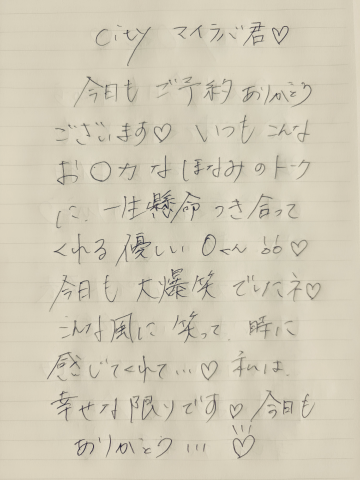 city マイラバ君♡
今日も ご予約ありがとう
ございます♡ いつもこんな
お〇カなほなみのトーク
に、一生懸命つき合って
くれる優しい〇くん♡
今日も大爆笑でしたネ♡
こんな風に笑って、時に
感じてくれて…♡ 私は、
幸せな限りです♡ 今日も
ありがとう…♡